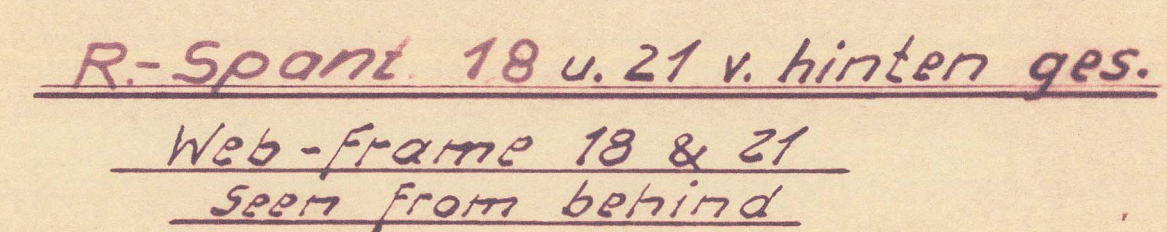 R.-Spant 18 u. 21 v. hinten ges.
Web-Frame 18 & 21
seen from behind